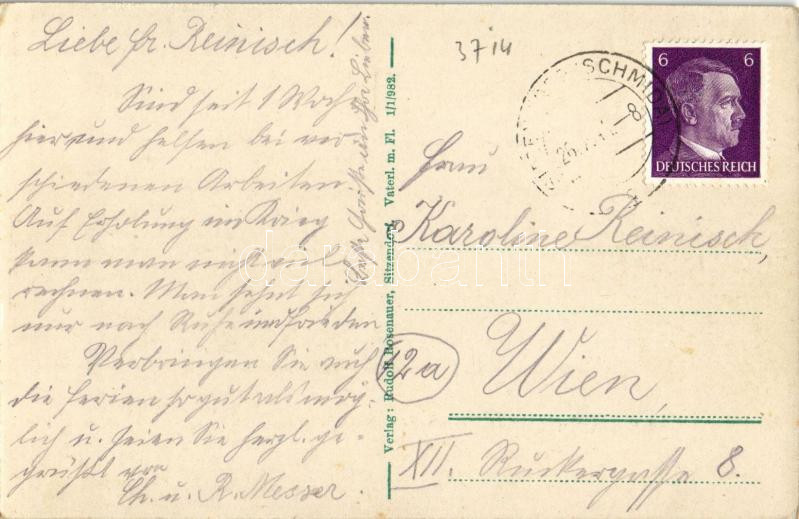 Liebe Fr. Reinisch!
Sind seit 1 Woche
hier und helfen bei ver
schiedenen Arbeiten.
Auf Erholung im Krieg
kann man nicht viel
rechnen. Man sehnt sich
nur nach Ruhe und Frieden
Verbringen Sie auch
die Ferien so gut als mög-
lich u. seien Sie herzl. ge-
grüßt von
Ch. u. R. Messer.
Verlag: Rudolf Rosenauer, Sitzendorf, Vaterl. m. Fl. 1/1/982.
3714
SCHMIDA
8
6 6
DEUTSCHES REICH
Frau
Karoline Reinisch,
12a
Wien,
XII. Ruckergasse 8.
darabanth